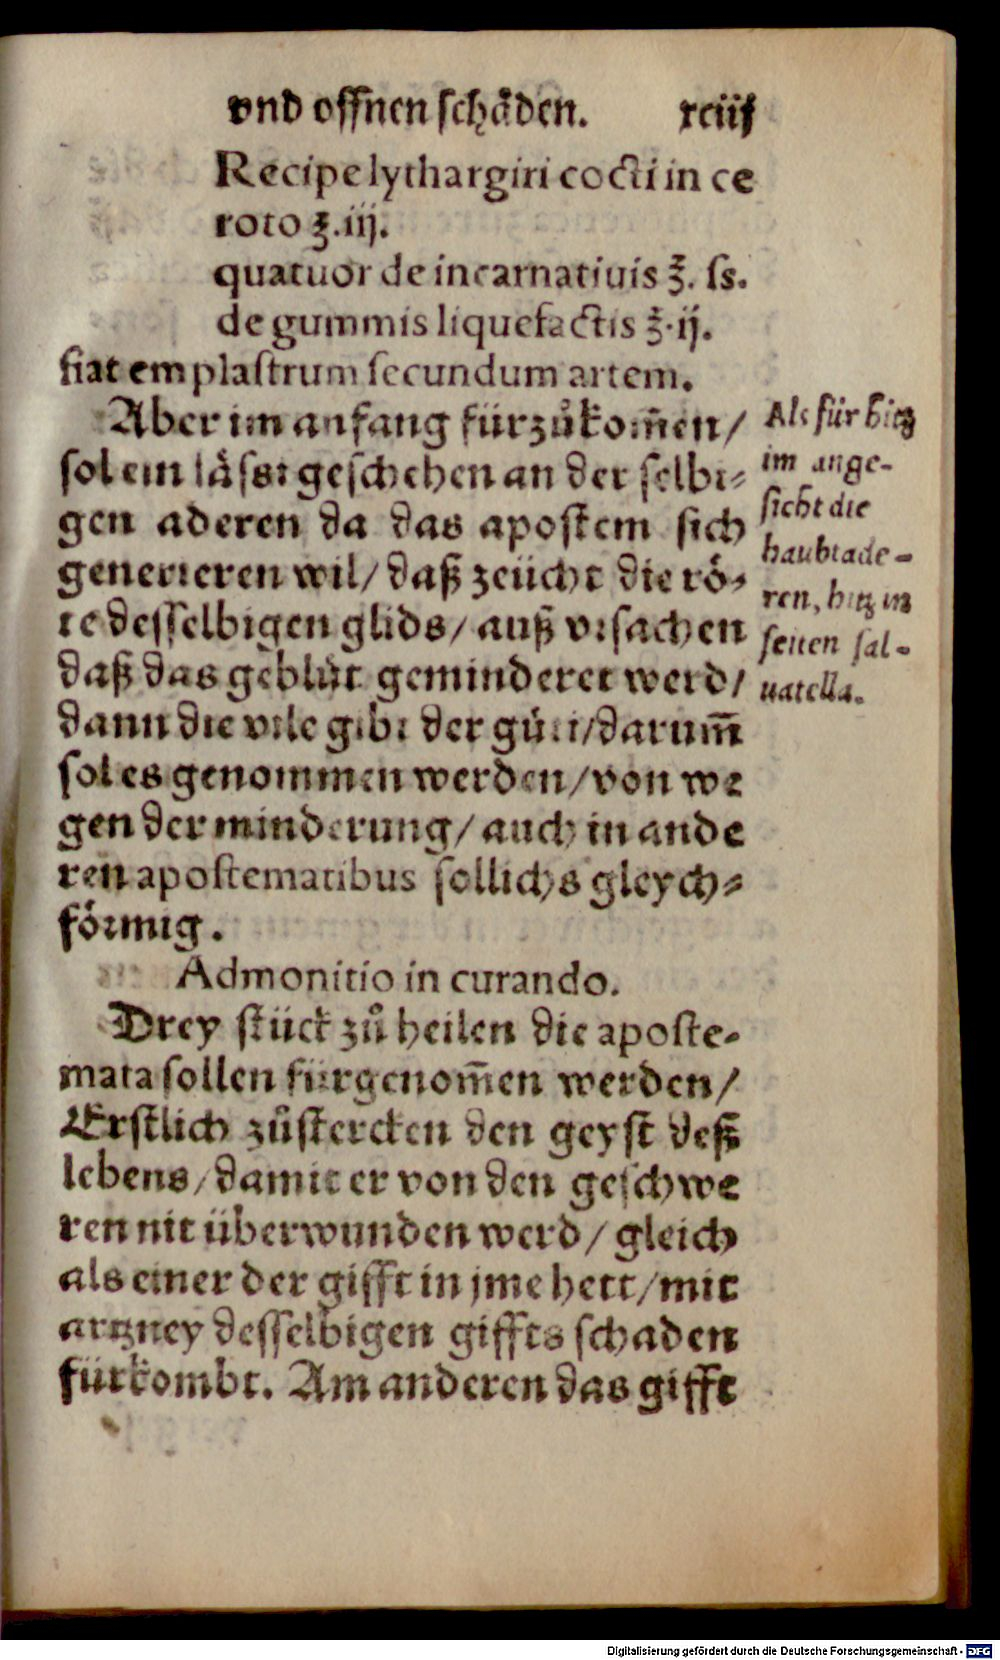 vnd offnen schäden. xciij
Recipe lythargiri cocti in ce
roto ℥.iij.
quatuor de incarnatiuis ℥. ſs.
de gummis liquefactis ℥.ij.
fiat emplaſtrum ſecundum artem.
Aber im anfang fürzůkom̄en/
ſol ein läſſ geſchehen an der ſelbi⸗
gen aderen da das apoſtem ſich
generieren wil/ daß zeücht die rö⸗
te deſſelbigen glids/ auß vrſachen
daß das geblüt geminderet werd/
dann die vile gibt der / darum̄
ſol es genommen werden/ von we
gen der minderung/ auch in ande
ren apoſtematibus ſollichs gleych⸗
förmig.
Als für hitz
im ange-
ſicht die
haubtade-
ren, hitz in
ſeiten ſal-
uatella.
Admonitio in curando.
Drey ſtück zů heilen die apoſte⸗
mata ſollen fürgenom̄en werden/
Erſtlich zůſtercken den geyſt deß
lebens/ damit er von den geſchwe
ren nit überwunden werd/ gleich
als einer der gifft in jme hett/ mit
artzney deſſelbigen giffts ſchaden
fürkombt. Am anderen das gifft
Digitalisierung gefördert durch die Deutsche Forschungsgemeinschaft - DFG